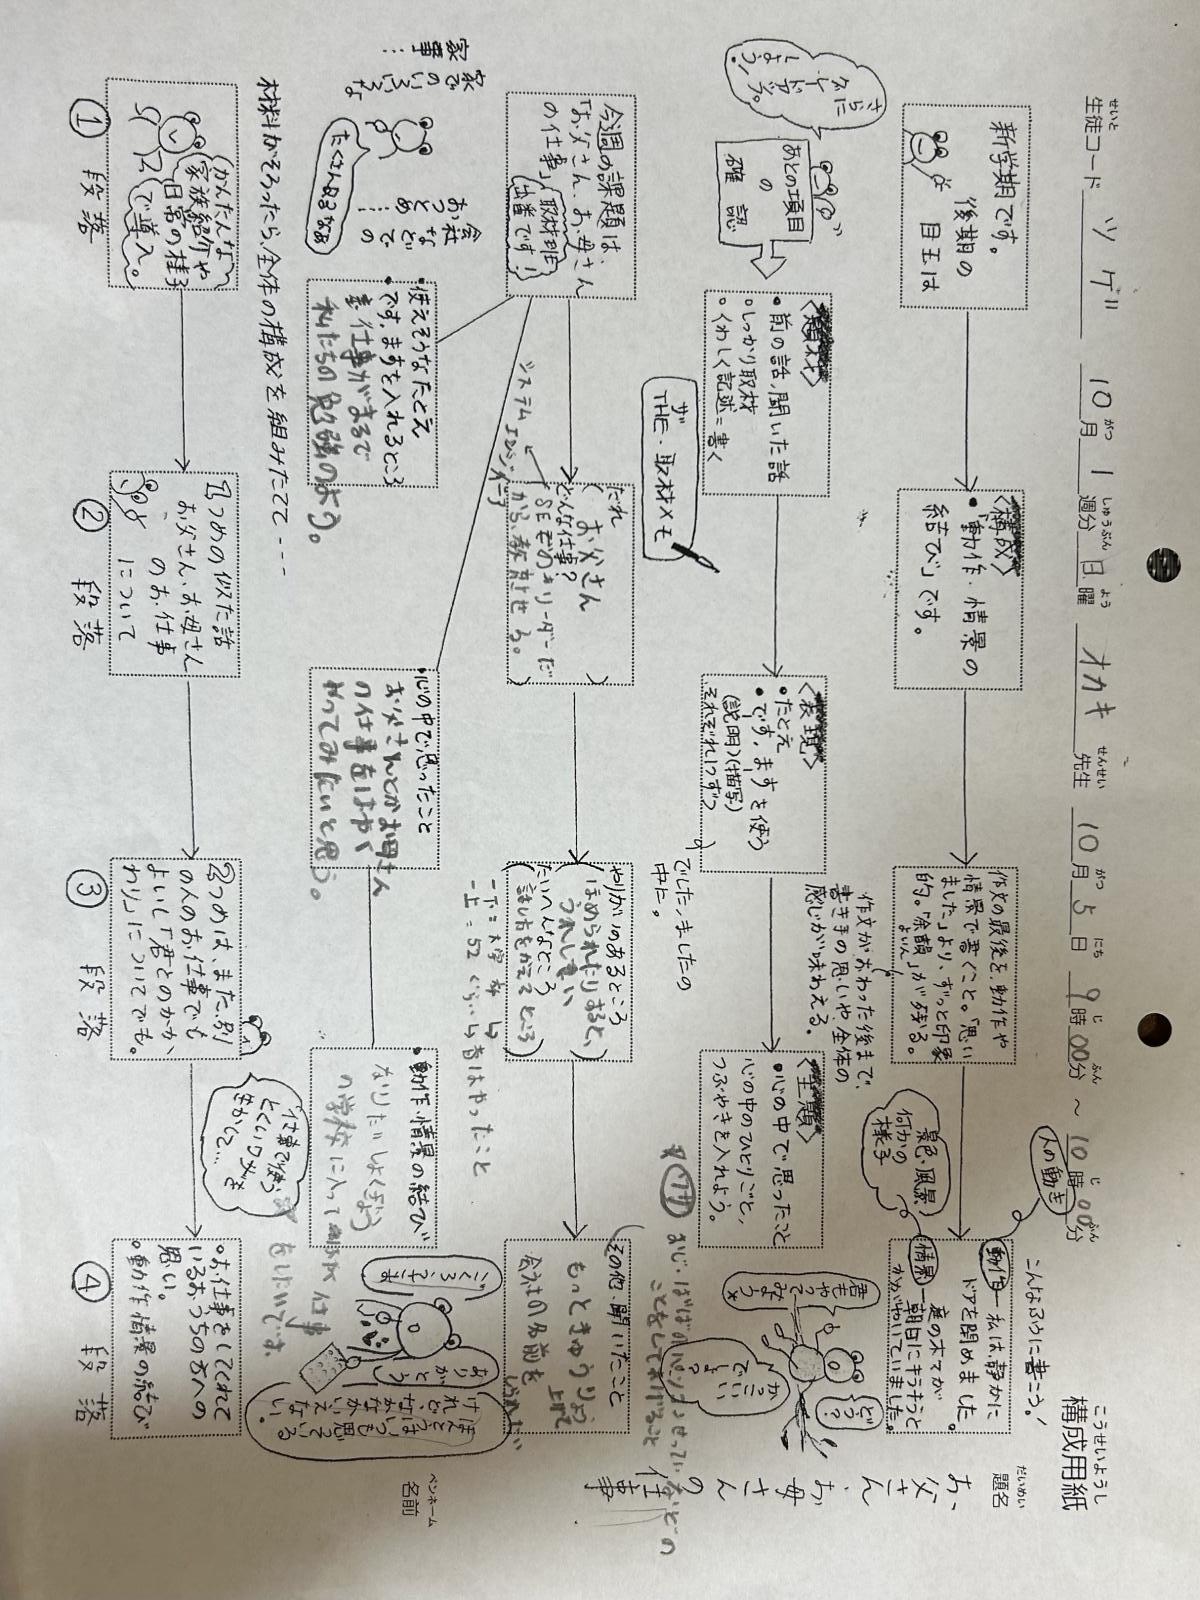 構成用紙
こうせいようし
生徒コード ツゲ 10月1週分 日曜 オカキ 先生 10月5日 9時00分 ～ 10時00分
せいと がつ しゅうぶん よう せんせい がつ にち じ ふん じ ふん
題名
だいめい
お父さん、お母さんの仕事
ペンネーム
名前
新学期です。
後期の
目玉は
〈構成〉
・「動作・情景の
結び」です。
作文の最後を、動作や
情景で書くこと。「思い
ました」より、ずっと印象
的。"余韻"が残る。
よいん
作文がおわった後まで、
書き手の思いや、全体の
感じが味わえる。
こんなふうに書こう！
人の動き
動作―私は、静かに
ドアを閉めました。
景色・風景
何かの
様子
情景―庭の木々が
朝日にキラキラと
かがやいていました。
さらに
グレードアップ
しよう！
あとの項目
の
確認
〈題材〉
・前の話、聞いた話
・しっかり取材
・くわしく記述＝書く
ザ
THE・取材メモ
〈表現〉
・たとえ
・です、ますを使う
(説明)(描写)
それぞれ1つずつ
でした、ましたの
中に。
〈主題〉
・心の中で思ったこと
心の中のひとりごと、
つぶやきを入れよう。
君もやって
みよう
どう？
かっこいい
でしょ？
今週の課題は、
「お父さん、お母さん
の仕事」
取材班
出番です！
会社
などでの
おつとめ…
家でのいろいろな
家事…
たくさんあるなぁ
だれ
お父さん
どんな仕事？
SEぞのリーダーだ
から、教かさせる。
システムエンジニア
やりがいのあるところ
ほめられたりすると、
うれしい
たいへんなところ
話し方をかえるところ
その他・聞いたこと
もっときゅうりょう
上げて
会社の名前を
・使えそうなたとえ
です、ますを入れるところ
仕事がまるで
私たちの勉強のよう。
・心の中で思ったこと
お父さんとかお母さん
の仕事をはやく
やってみたいと思う。
・動作・情景の結び
なりたいしょくぎょう
の学校に入って
仕事
をしたいです。
ごくろうさま
ありがとう
ほんとうはいつも思っている
けれど、なかなかいえない。
材料がそろったら、全体の構成を組みたてて----
かんたんな
家族紹介や
日常の様子
で導入。
① 段落
1つめの似た話
お父さん、お母さん
のお仕事
について
② 段落
2つめは、また、別
の人のお仕事でも
よいし「君とのかか
わり」についてでも。
③ 段落
仕事で使う
とくいワザを
生かして…
・お仕事をしてくれて
いるおうちの方への
思い。
・動作・情景の結び
④ 段落